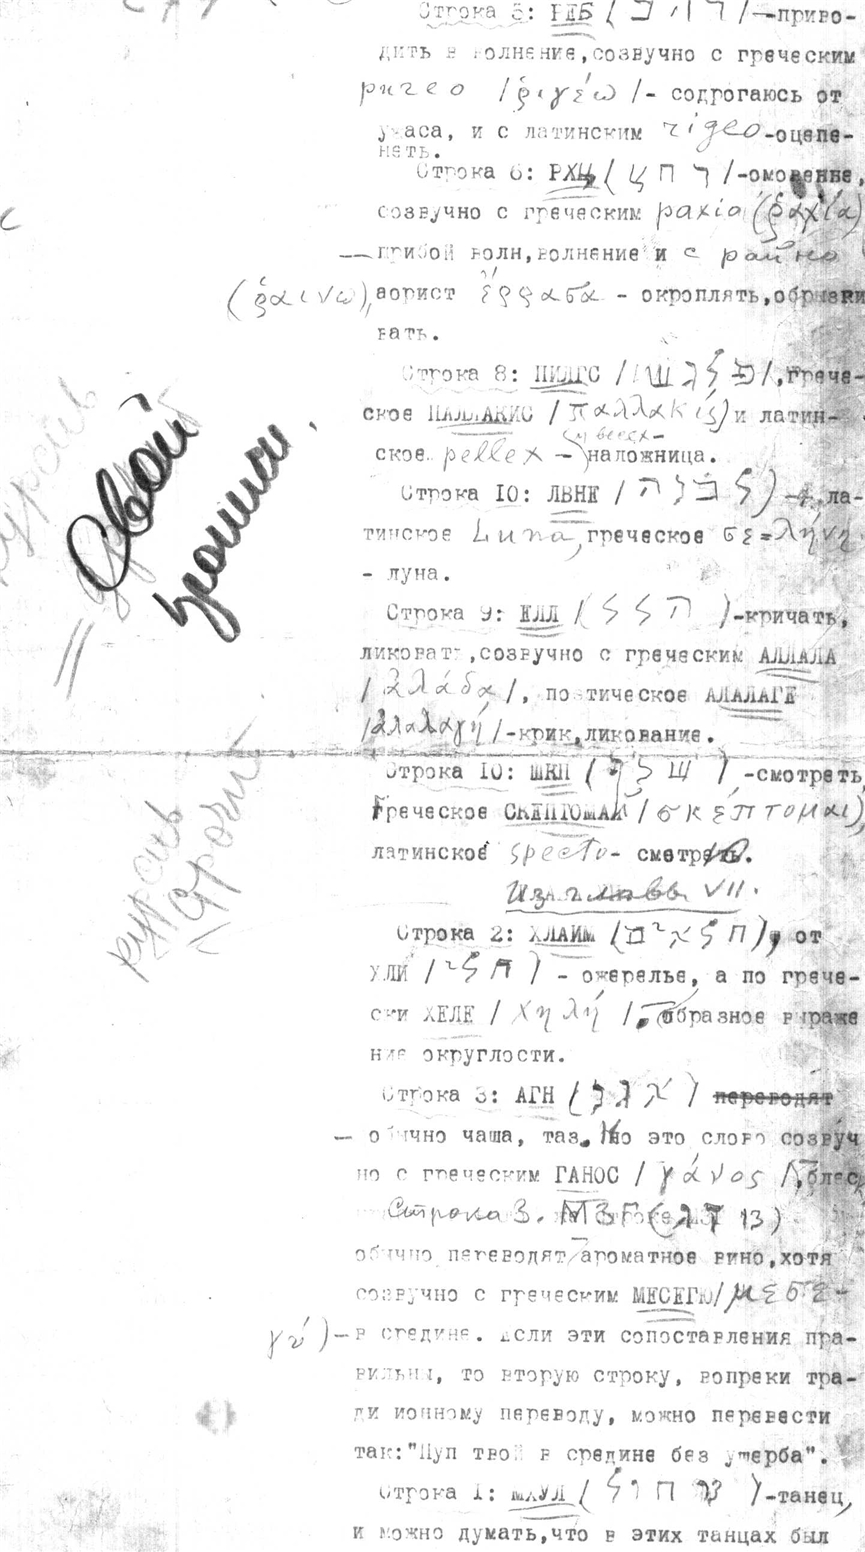 Строка 5: РЕБ / —приво-
дить в волнение,созвучно с греческим
ригео /ῥιγέω/- содрогаюсь от
ужаса, и с латинским rigeo-оцепе-
неть.
Строка 6: РХЦ ( ר ח צ /-омовение,
созвучно с греческим рахіа (ῥαχία)
—прибой волн,волнение и с райно
(ῥαινω), аорист ἔρρασα - окроплять,обрызги
вать.
Строка 8: ПИЛГС / ,грече-
ское ПАЛЛАКИС /παλλακίς) и латин-
ское pellex — наложница.
Строка 10: ЛВНЕ / ה נ ב ל ) - ла-
тинское Luna, греческое σε=λήνη
- луна.
Строка 9: ЕЛЛ / ל ל ה )-кричать,
ликовать,созвучно с греческим АЛЛАЛА
/ἀλάλα/, поэтическое АЛАЛАГЕ
/ἀλαλαγή/-крик,ликование.
Строка 10: ШКП ( ) -смотреть,
Греческое СКЕПТОМАИ /σκέπτομαι),
латинское specto- смотреть.
Из главы VII.
Строка 2: ХЛАИМ (ם י א ל ח), от
ХЛИ / י ל ח ) - ожерелье, а по грече-
ски ХЕЛЕ / χηλή /, образное выраже
ние округлости.
Строка 3: АГН ( ן ג א ) переводят
— обычно чаша, таз. Но это слово созвуч
но с греческим ГАНОС / γάνος /, блеск,
Строка 3. МЗГ (
обычно переводят ароматное вино,хотя
созвучно с греческим МЕСЕГЮ/μεσε-
γύ)—в средине. Если эти сопоставления пра-
вильны, то вторую строку, вопреки тра-
диционному переводу, можно перевести
так:"Пуп твой в средине без ущерба".
Строка 1: МХУЛ ( ל ו ח מ )-танец,
и можно думать,что в этих танцах был
Свой
курсив
строчн